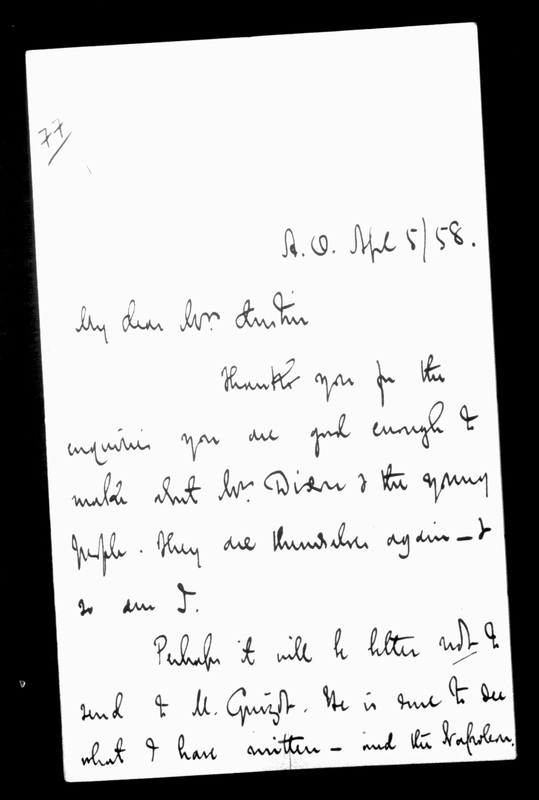 77
A. O. Apl 5/58.
My dear Mrs. Austin
Thanks you for the
enquiries you are good enough to
make about Mrs. Dixon & the young
people. They are themselves again - &
so am I.
Perhaps it will be better not to
send to M. Guizot. He is sure to see
what I have written - and the Napoleon.